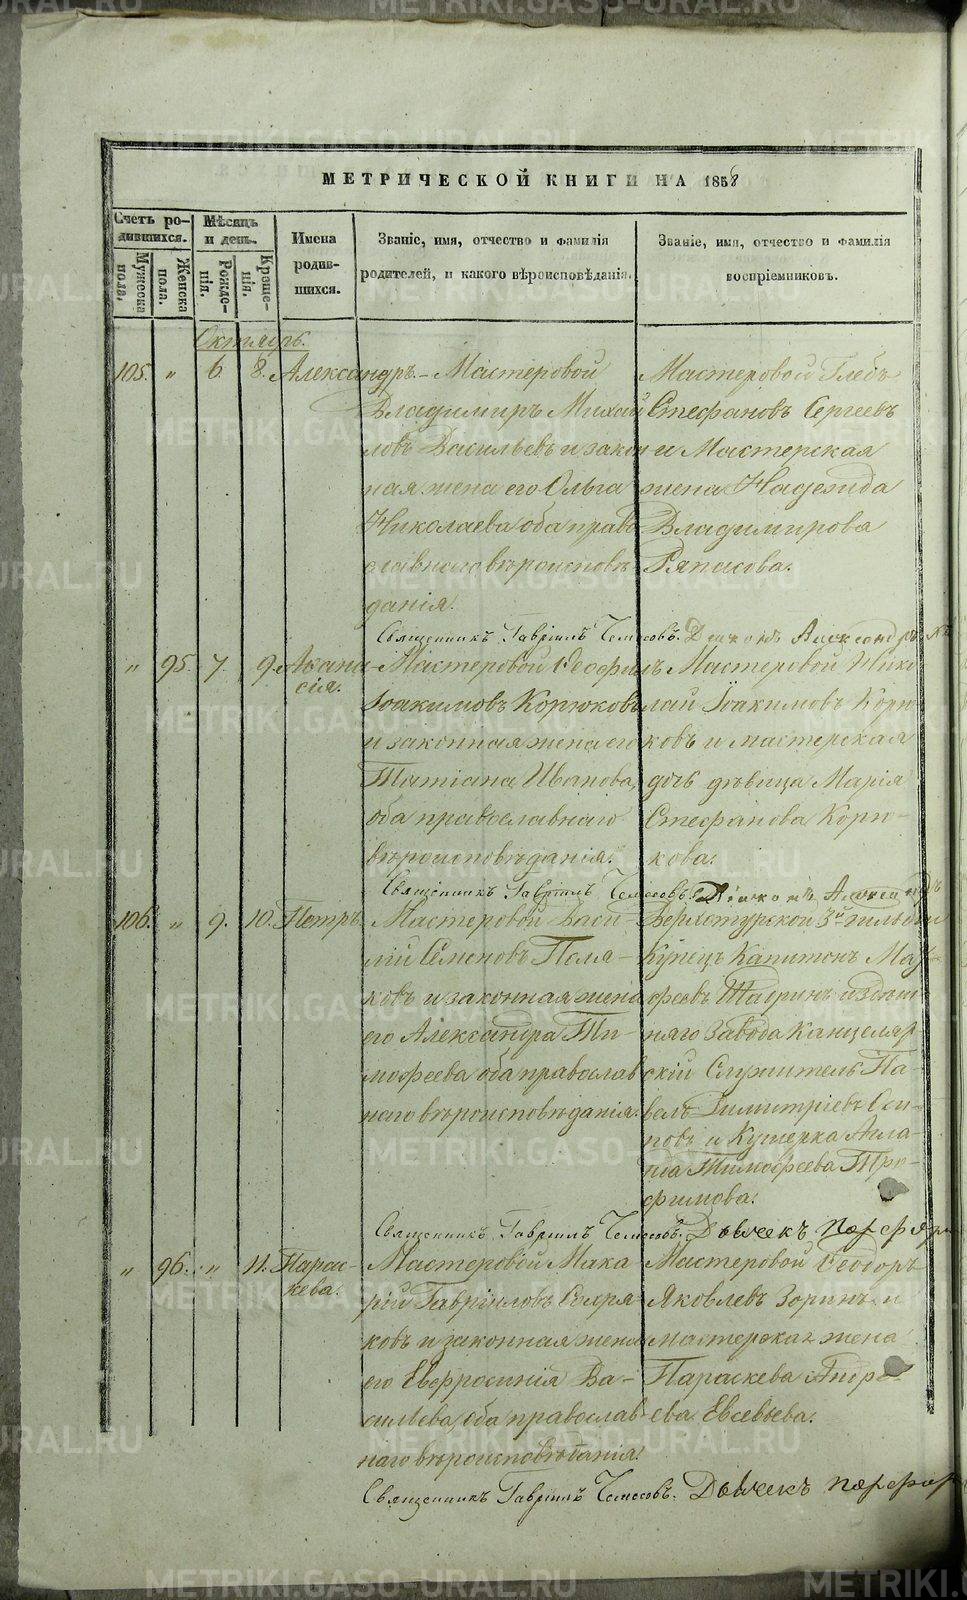 МЕТРИЧЕСКОЙ КНИГИ НА 1858
Счетъ ро-
дившихся.
Мужеска
пола.
Женска
пола.
Мѣсяцъ
и день.
Рожде-
нія.
Креще-
нія.
Имена
родив-
шихся.
Званіе, имя, отчество и фамилія
родителей, и какого вѣроисповѣданія.
Званіе, имя, отчество и фамилія
воспріемниковъ.
Октябрь.
105. „ 6. 8. Александръ. Мастеровой
Владимиръ Михай
ловъ Васильевъ и закон
ная жена его Ольга
Николаева оба право
славнаго вѣроисповѣ
данія.
Мастеровой Глебъ
Стефановъ Сергеевъ
и Мастерская
жена Надежда
Владимирова
Ряпасова.
Священникъ Гавріилъ Диаконъ Александръ
„ 95. 7. 9. Аѳана
сія.
Мастеровой Ѳеофилъ
Іоакимовъ Корюковъ
и законная жена его
Татіана Иванова,
оба православнаго
вѣроисповѣданія.
Мастеровой Нико
лай Іоакимовъ Корю
ковъ и мастерская
дочь дѣвица Марія
Стефанова Корю-
кова.
Священникъ Гавріилъ
106. „ 9. 10. Петръ.
Мастеровой Васи-
лій Семеновъ Поля-
ковъ и законная жена
его Александра Ти-
мофеева оба православ
наго вѣроисповѣданія.
Верхотурской 3й гильдіи
Купецъ Капитонъ
и здѣш
няго Завода Канцеляр
скій Служитель Па-
велъ Димитріевъ Оси-
повъ и Кушерка Агла-
ида Тимофеева Тро-
фимова.
Священникъ Гавріилъ
„ 96. „ 11. Парас-
кева.
Мастеровой Мака
рій Гавріиловъ
ковъ и законная жена
его Евфросинія Ва-
сильева, оба православ
наго вѣроисповѣданія.
Мастеровой Ѳеодоръ
Яковлевъ Зоринъ и
мастерская жена
Параскева Андре-
ева Евсевьева.
Священникъ Гавріилъ
METRIKI.GASO-URAL.RU